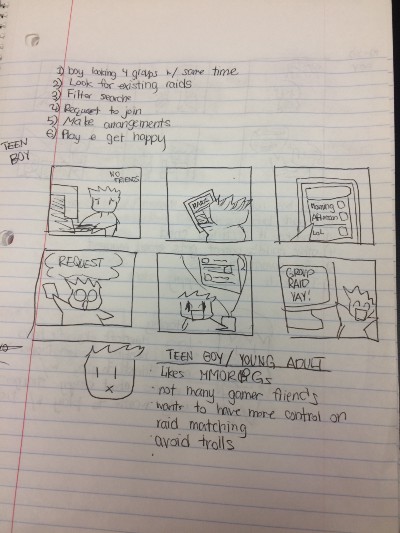 1) boy looking 4 groups w/ same time
2) Look for existing raids
3) Filter search
4) Request to join
5) Make arrangements
6) Play & get happy
TEEN
BOY
NO
FRIENDS
RAIDS
Morning
Afternoon
LoL
REQUEST
GROUP
RAID
YAY!
TEEN BOY / YOUNG ADULT
· Likes MMORPGs
· not many gamer friends
· wants to have more control on
raid matching
· avoid trolls